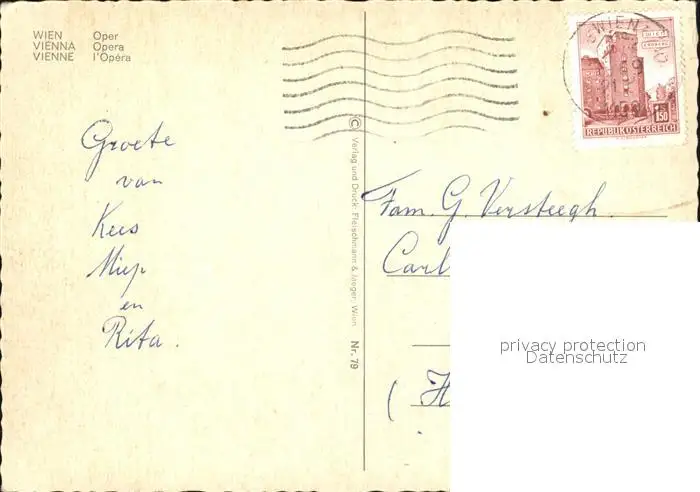 WIEN Oper
VIENNA Opera
VIENNE l'Opéra
Groete
van
Kees
Miep
en
Rita.
© Verlag und Druck: Fleischmann & Jaeger, Wien
Nr. 79
WIEN
ERDBERG
1.50
REPUBLIK ÖSTERREICH
Fam. G. Versteegh.
Carl
(H
privacy protection
Datenschutz